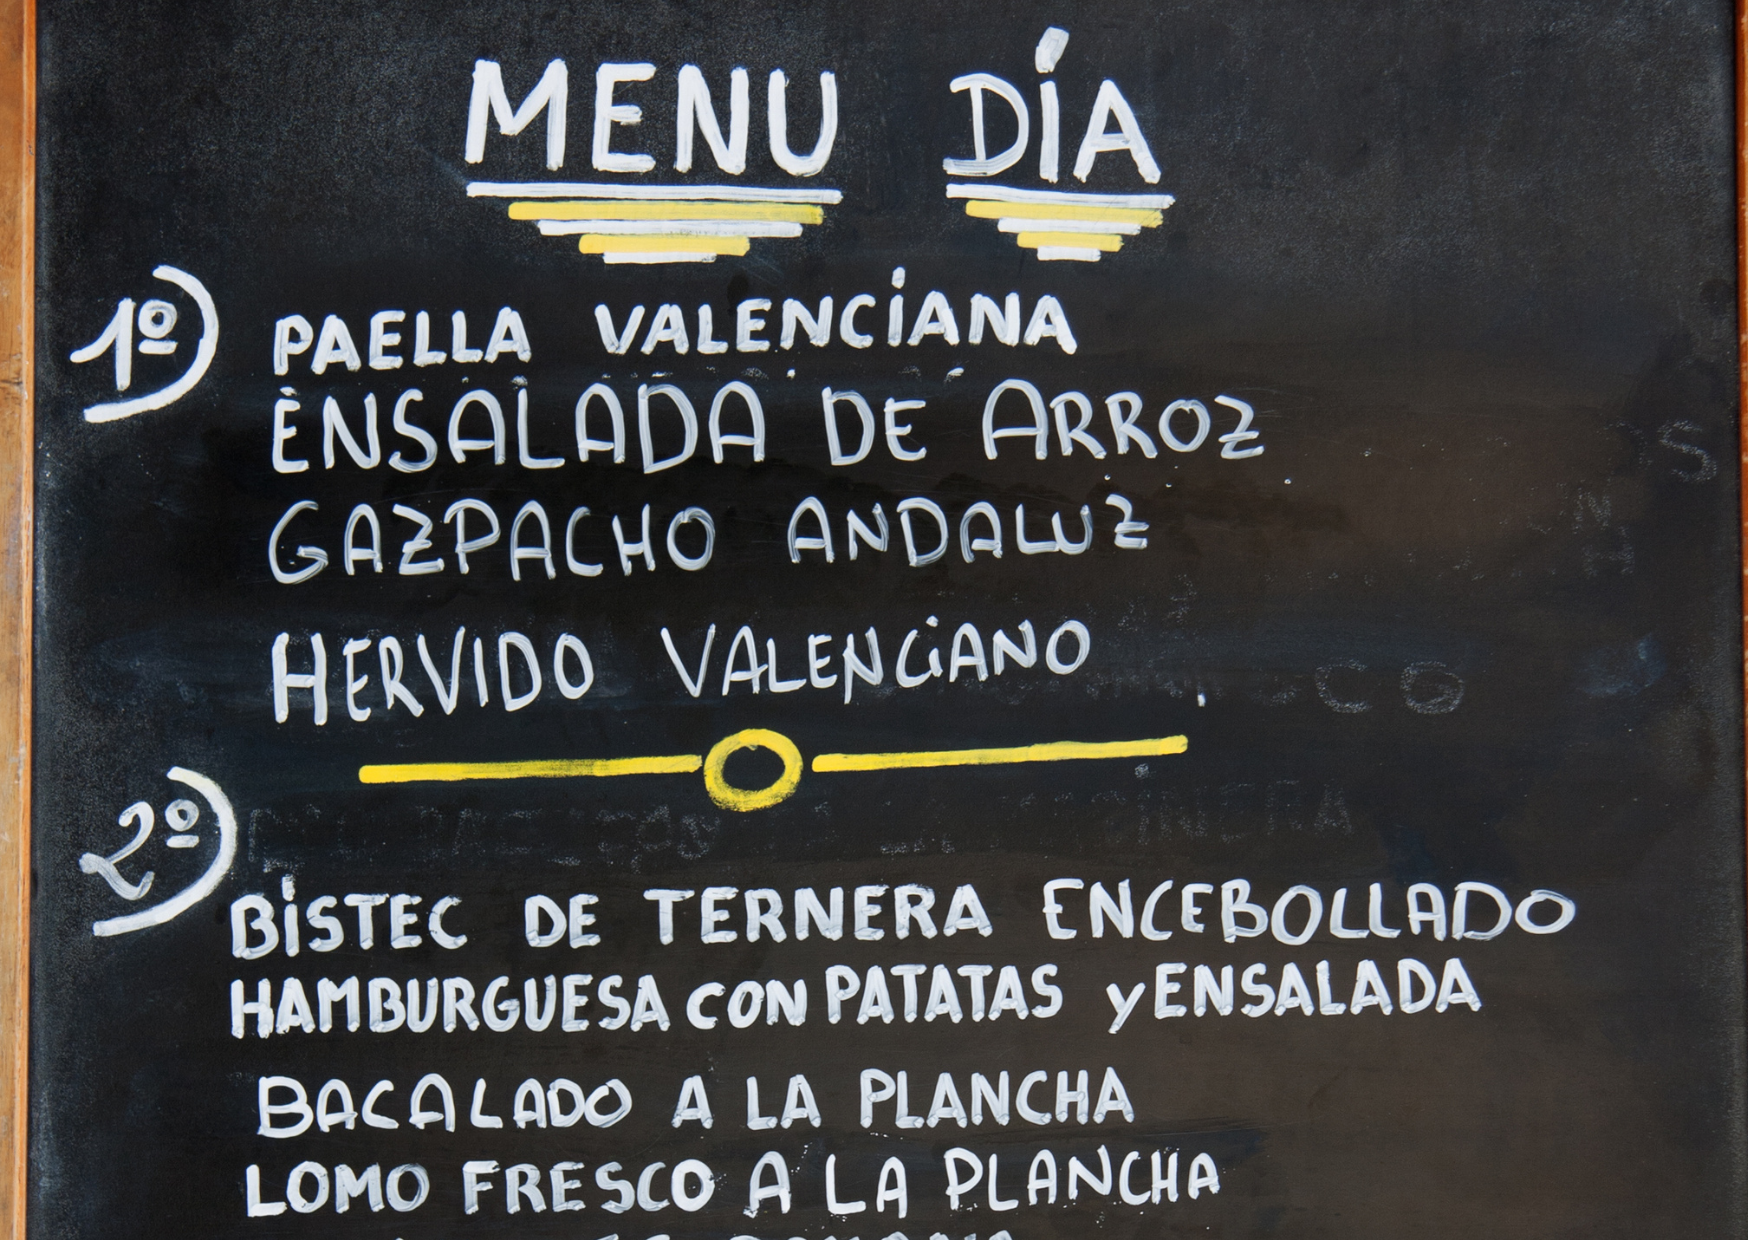 MENU DÍA
1º) PAELLA VALENCIANA
ENSALADA DE ARROZ
GAZPACHO ANDALUZ
HERVIDO VALENCIANO
2º) BISTEC DE TERNERA ENCEBOLLADO
HAMBURGUESA CON PATATAS y ENSALADA
BACALADO A LA PLANCHA
LOMO FRESCO A LA PLANCHA